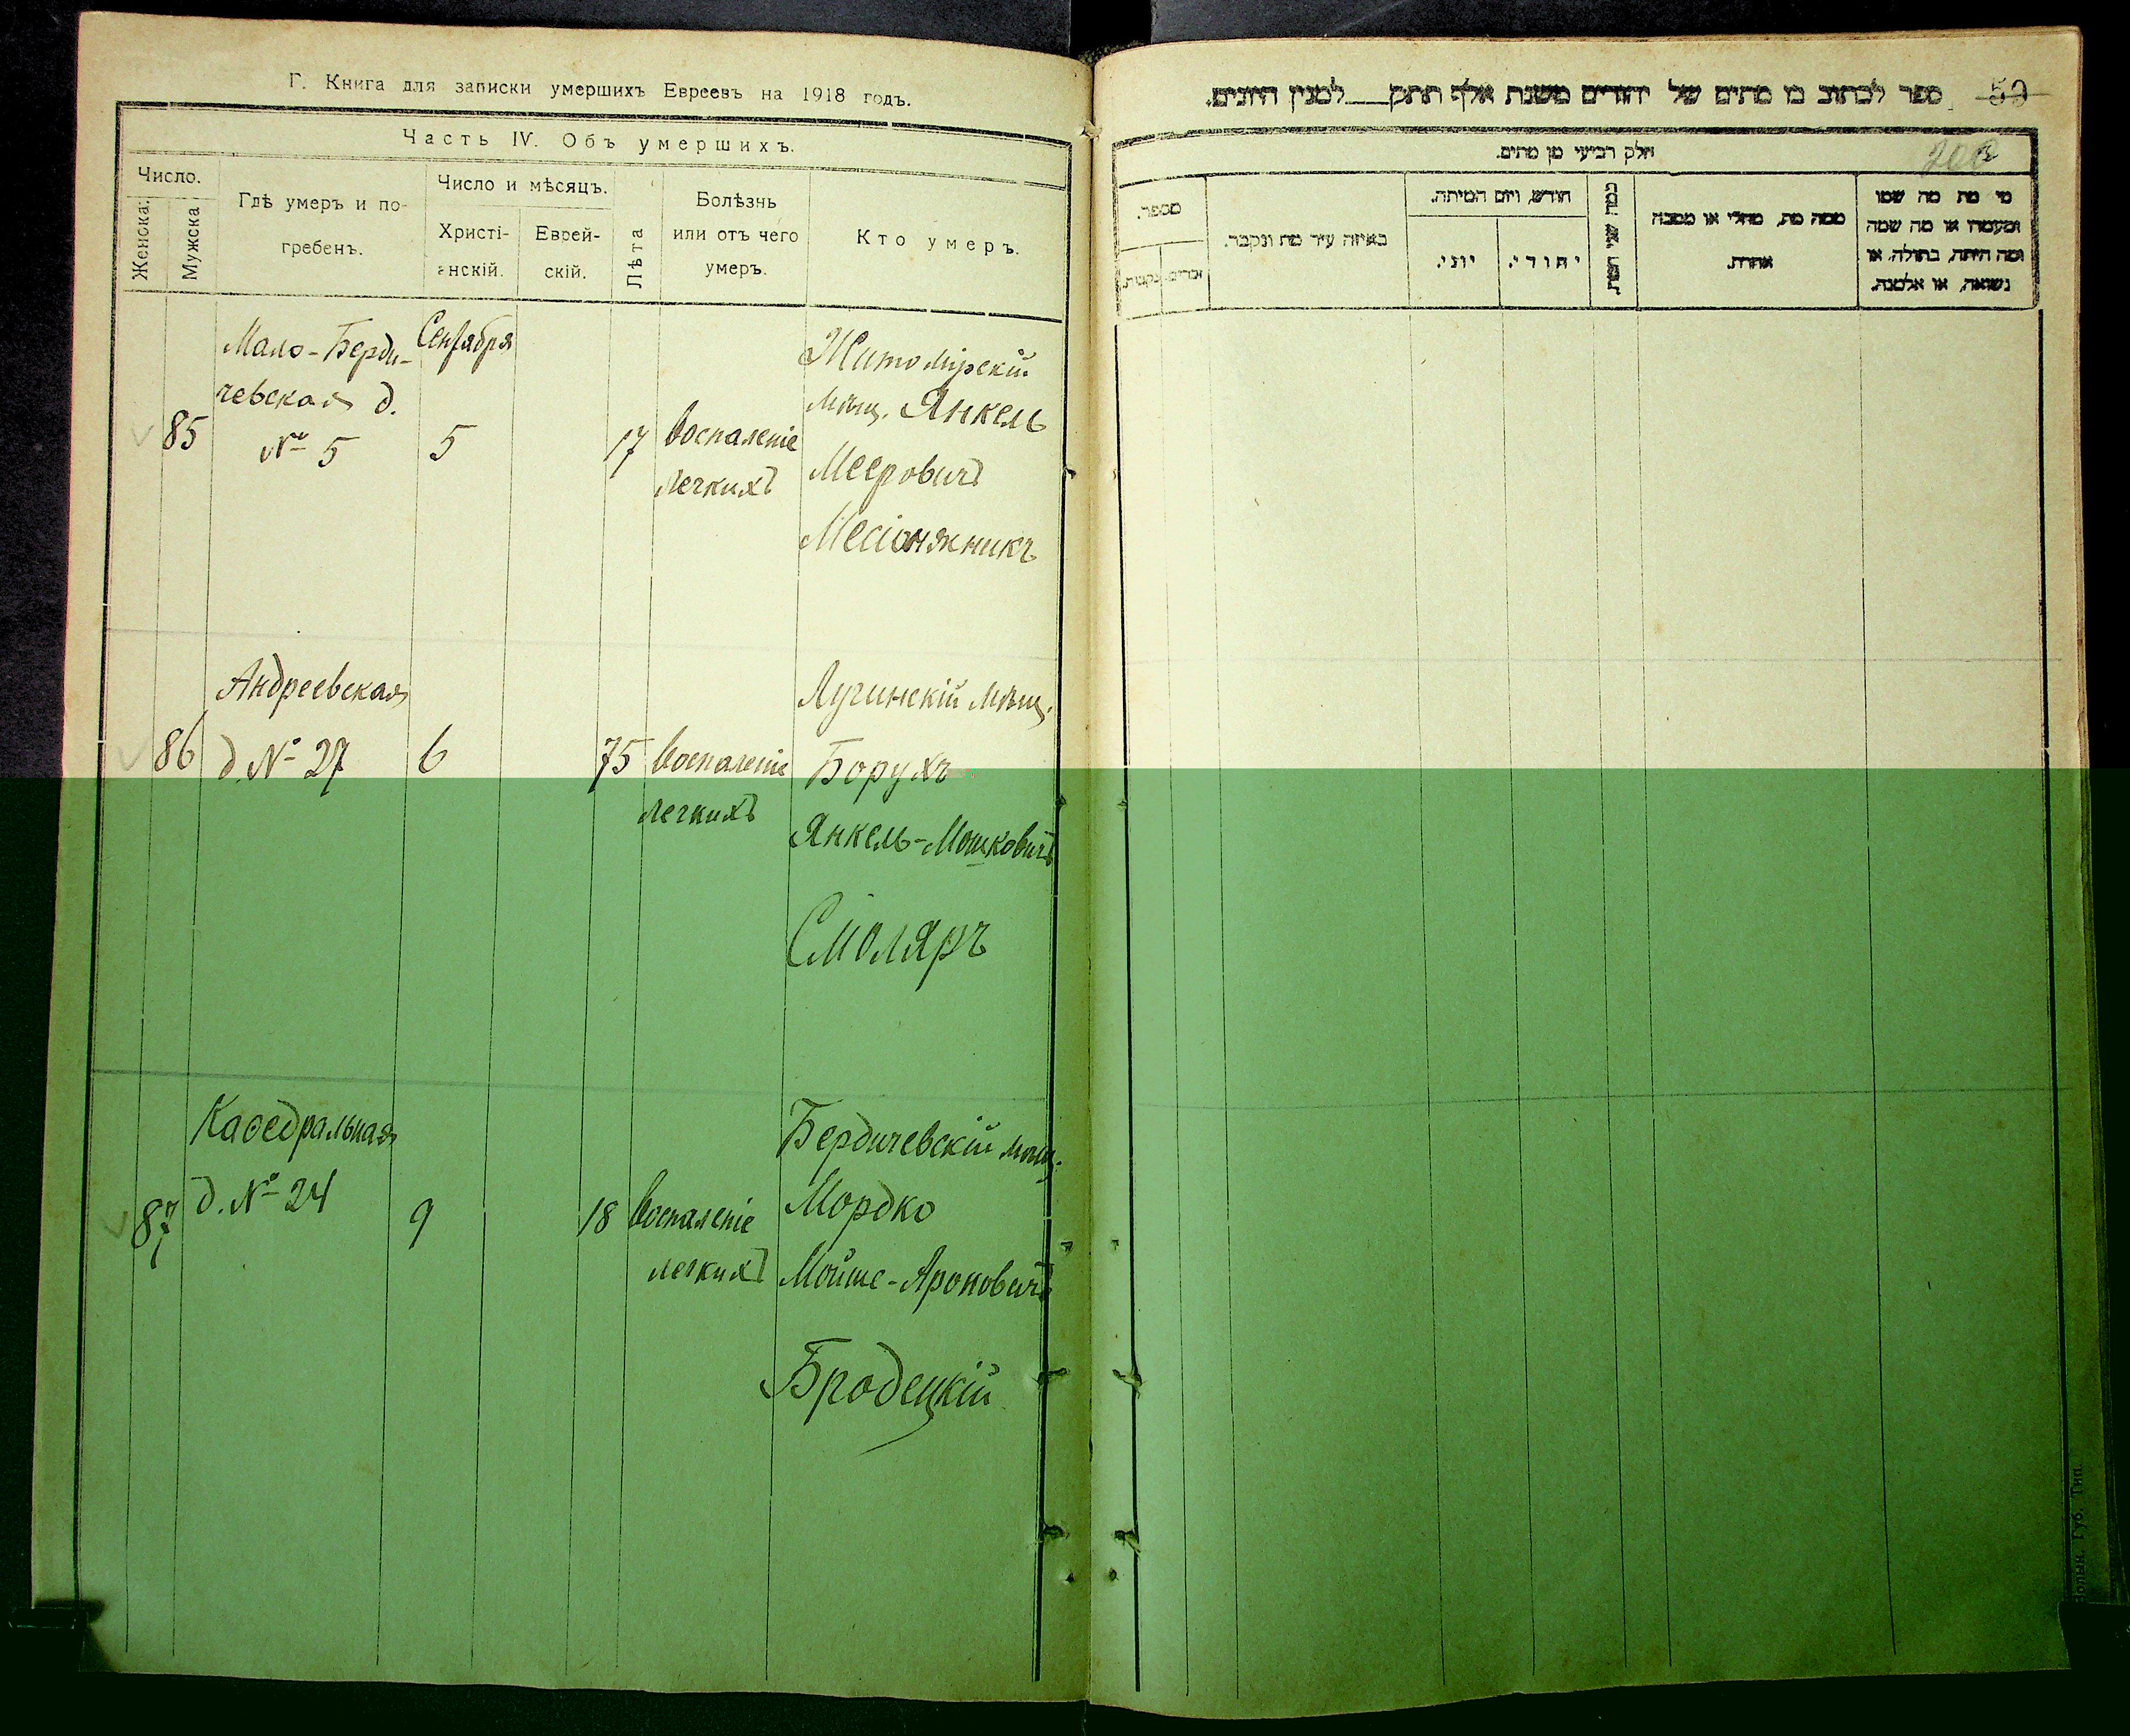 Г. Книга для записки умершихъ Евреевъ на 1918 годъ.
Часть IV. Объ умершихъ.
Число.
Женска.
Мужска
Гдѣ умеръ и по-
гребенъ.
Число и мѣсяцъ.
Христі-
анскій.
Еврей-
скій.
Лѣта
Болѣзнь
или отъ чего
умеръ.
Кто умеръ.
85
Мало-Берди-
чевская д.
№ 5
Сентября
5
17
Воспаленіе
легкихъ
Житомірскій
мѣщ. Янкель
Мееровичъ
86
Андреевская
д. № 27
6
75
Воспаленіе
легкихъ
Лугинскій мѣщ.
Борухъ
Янкель-Мошковичъ
Смоляръ
87
Каѳедральная
д. № 24
9
18
Воспаленіе
легкихъ
Бердичевскій мѣщ.
Мордко
Мойше-Ароновичъ
Бродецкій
ספר לכתוב מן מתים של יהודים משנת אלף תתק למנין היונים.
59
חלק רביעי מן מתים.
מי מת מה שמו
ומעמדו או מה שמה
ומה היתה, בתולה, או
נשואה, או אלמנה.
ממה מת, מחלי או מסבה
אחרת.
כמה שני המת.
חודש, ויום המיתה.
יהודי.
יוני.
באיזה עיר מת ונקבר.
מספר.
זכרים.
נקבות.
Губ. Тип.